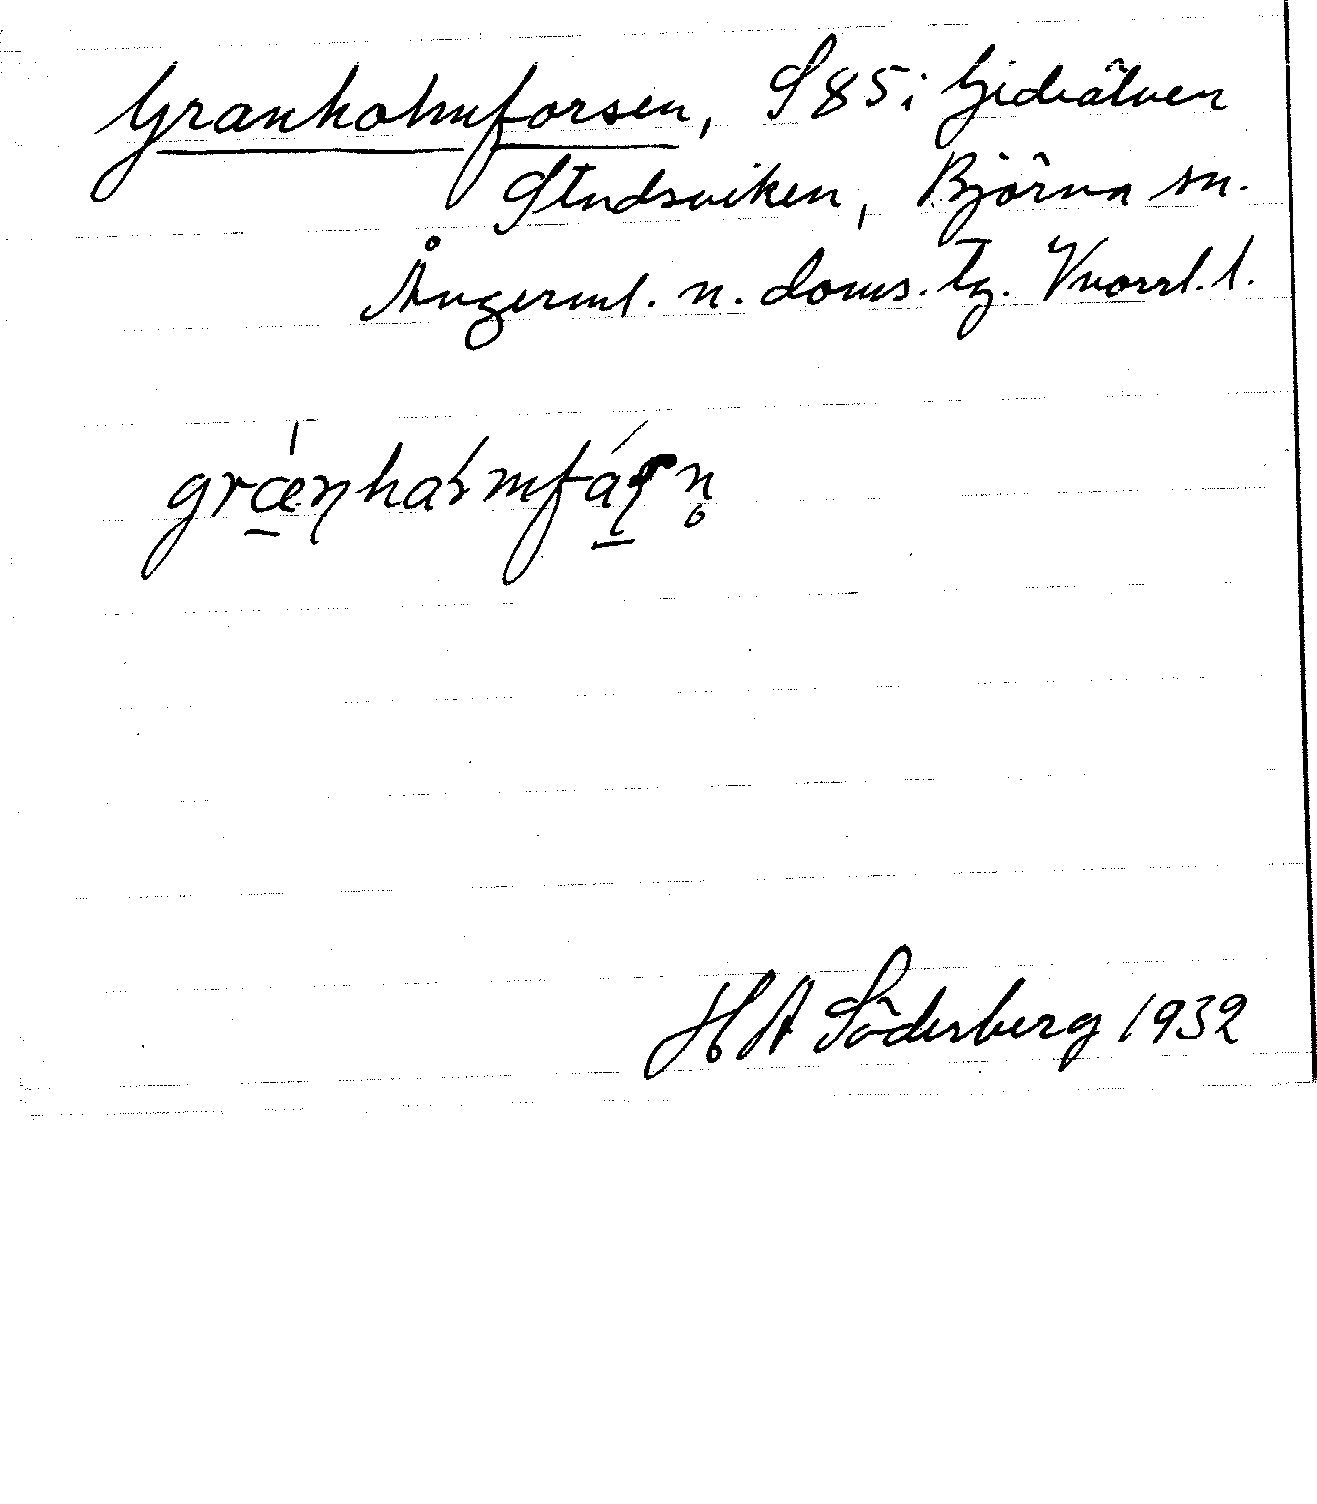 Granholmforsen, S 85 i Gideälven
Studsviken, Björna sn.
Ångerml. n. doms. tg. Vnorrl. l.
grænhalmfáṣn̥
H A Söderberg 1932